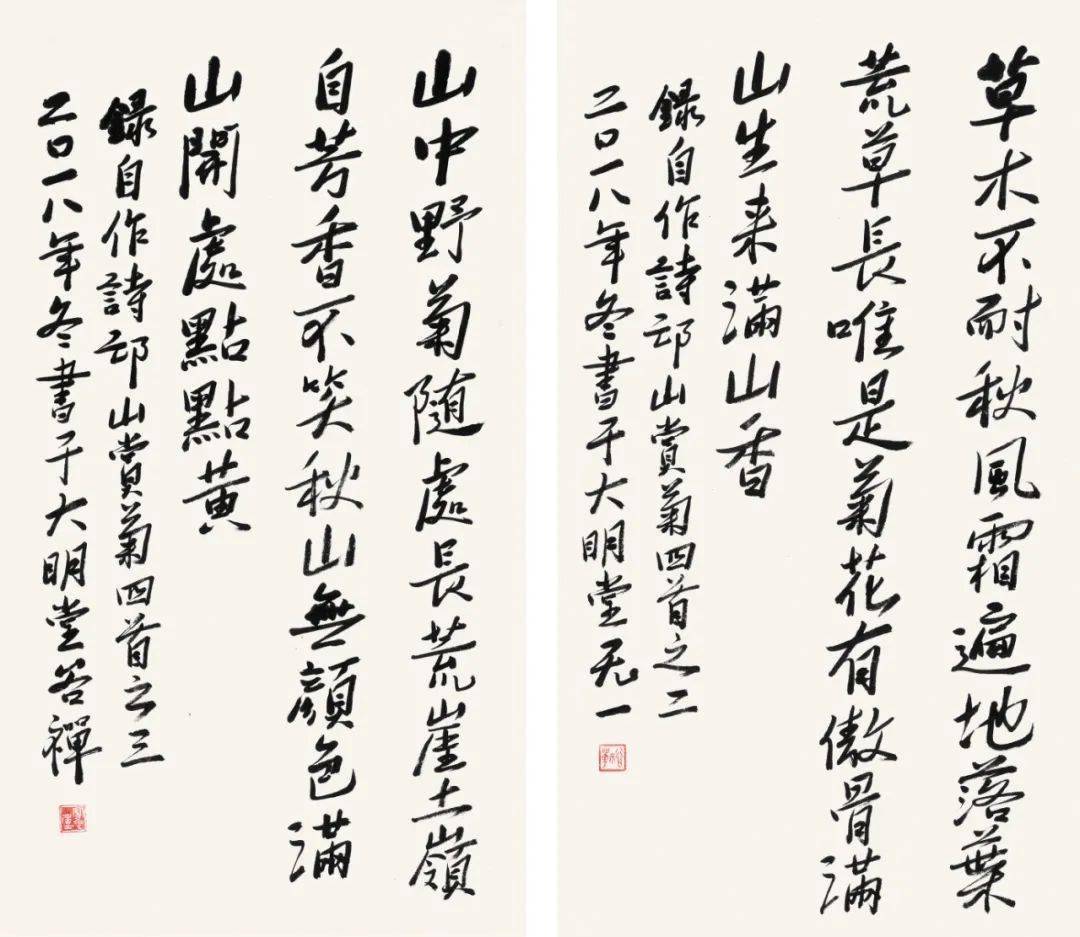 草木不耐秋風霜遍地落葉
荒草長唯是菊花有傲骨滿
山生来滿山香
録自作詩邙山賞菊四首之二
二〇一八年冬書于大明堂无一
山中野菊隨處長荒崖土嶺
自芳香不笑秋山無顔色滿
山開處點點黃
録自作詩邙山賞菊四首之三
二〇一八年冬書于大明堂谷禪